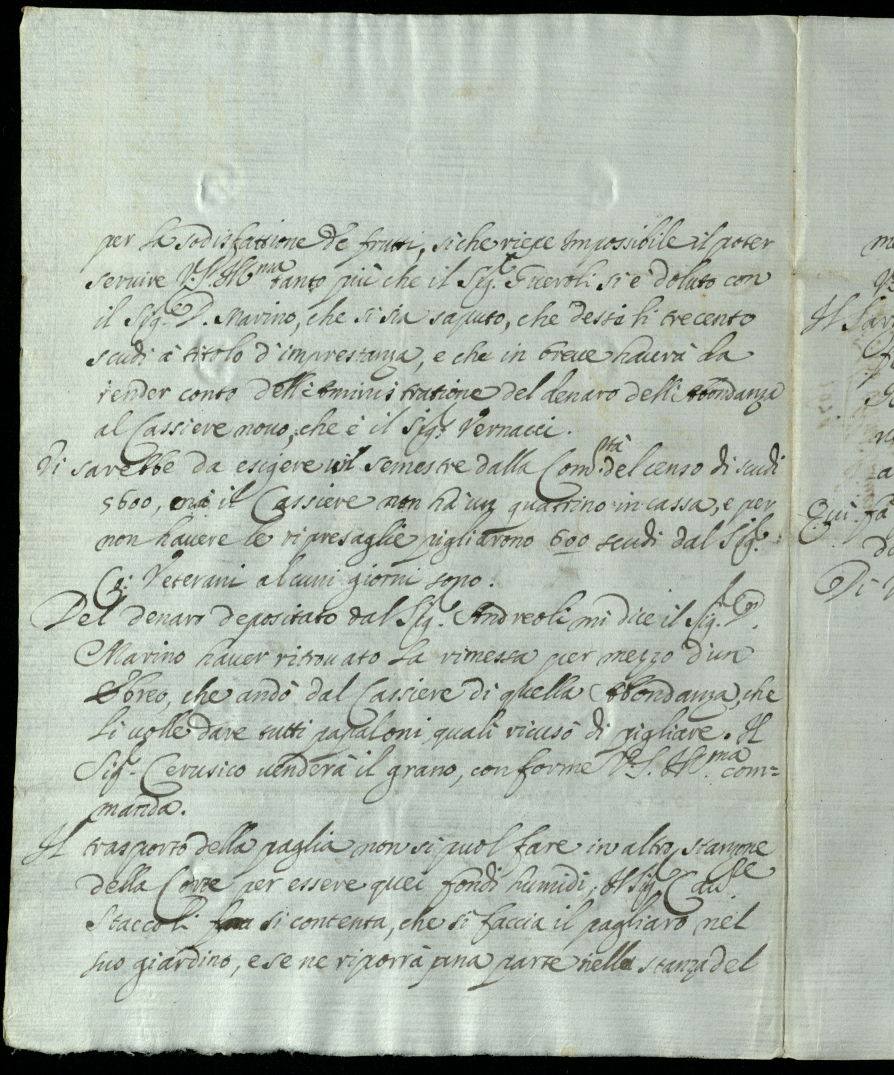 per la sodisfattione de frutti, siche riesce impossibile il poter
servire V.S. Ill.ma tanto più che il Sig.r Ticeroli si è doluto con
il Sig.r D. Marino, che si sia saputo, che dessi li trecento
scudi à titolo d'imprestanza, e che in breve haverà da
render conto dell'Aministratione del denaro dell'Abondanza
al Cassiere novo, che è il Sig.r Vernacci.
Si sarebbe da esigere il semestre dalla Com.tà del censo di scudi
5600, mà il Cassiere non hà un quatrino in cassa, e per
non havere le ripresaglie pigliarono 600 scudi dal Sig.r
Veterani alcuni giorni sono.
Del denaro depositato dal Sig.r Andreoli mi dice il Sig.r D.
Marino haver ritrovato la rimessa per mezzo d'un
Ebreo, che andò dal Cassiere di quella Abbondanza, che
li volle dare tutti papaloni, quali ricusò di pigliare. Il
Sig.r Cerusico venderà il grano, conforme V.S. Ill.ma com=
manda.
Il trasporto della paglia non si puol fare in altre stanze
della Corte per essere quei fondi humidi, Il Sig.r Cau.re
Staccoli si contenta, che si faccia il pagliaro nel
suo giardino, e se ne riporrà una parte nella stanza del
Il
Qui fà
Di